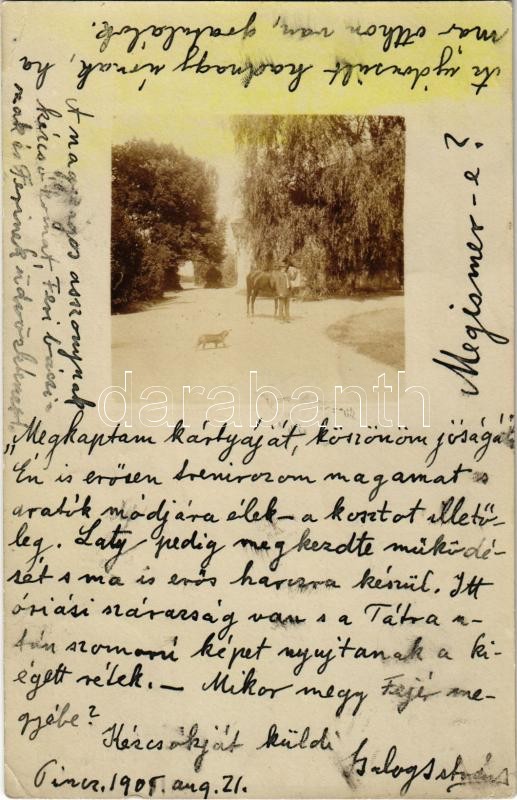 Az ujdonsült hadnagy úrnak, ha
már otthon van, gratulálok.
A nagyságos asszonynak
kézcsókomat Feri bácsi-
nak és Ferinek üdvözletemet.
Megismer-e?
darabanth
„Megkaptam kártyáját, köszönöm jóságát
Én is erősen trenirozom magamat s
aratók módjára élek – a kosztot illető-
leg. Laty pedig megkezdte működé-
sét s ma is erős harczra készül. Itt
óriási szárazság van s a Tátra u-
tán szomorú képet nyujtanak a ki-
égett rétek. – Mikor megy Fejér me-
gyébe?
Kézcsókját küldi
Balogh István
1905. aug. 21.